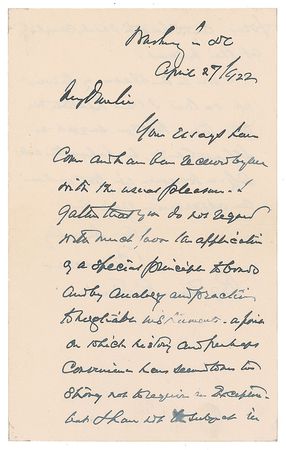 Washington DC
April 27/1922
My dear
Your essays have
Come and have been received by me
with the usual pleasure - I
gather that you do not regard
with much favor the application
of a special principle to bonds
and by analogy and practice
to negotiable instruments - a point
on which history and perhaps
Convenience have seemed to me too
strong not to require an exception
but I have not subject in